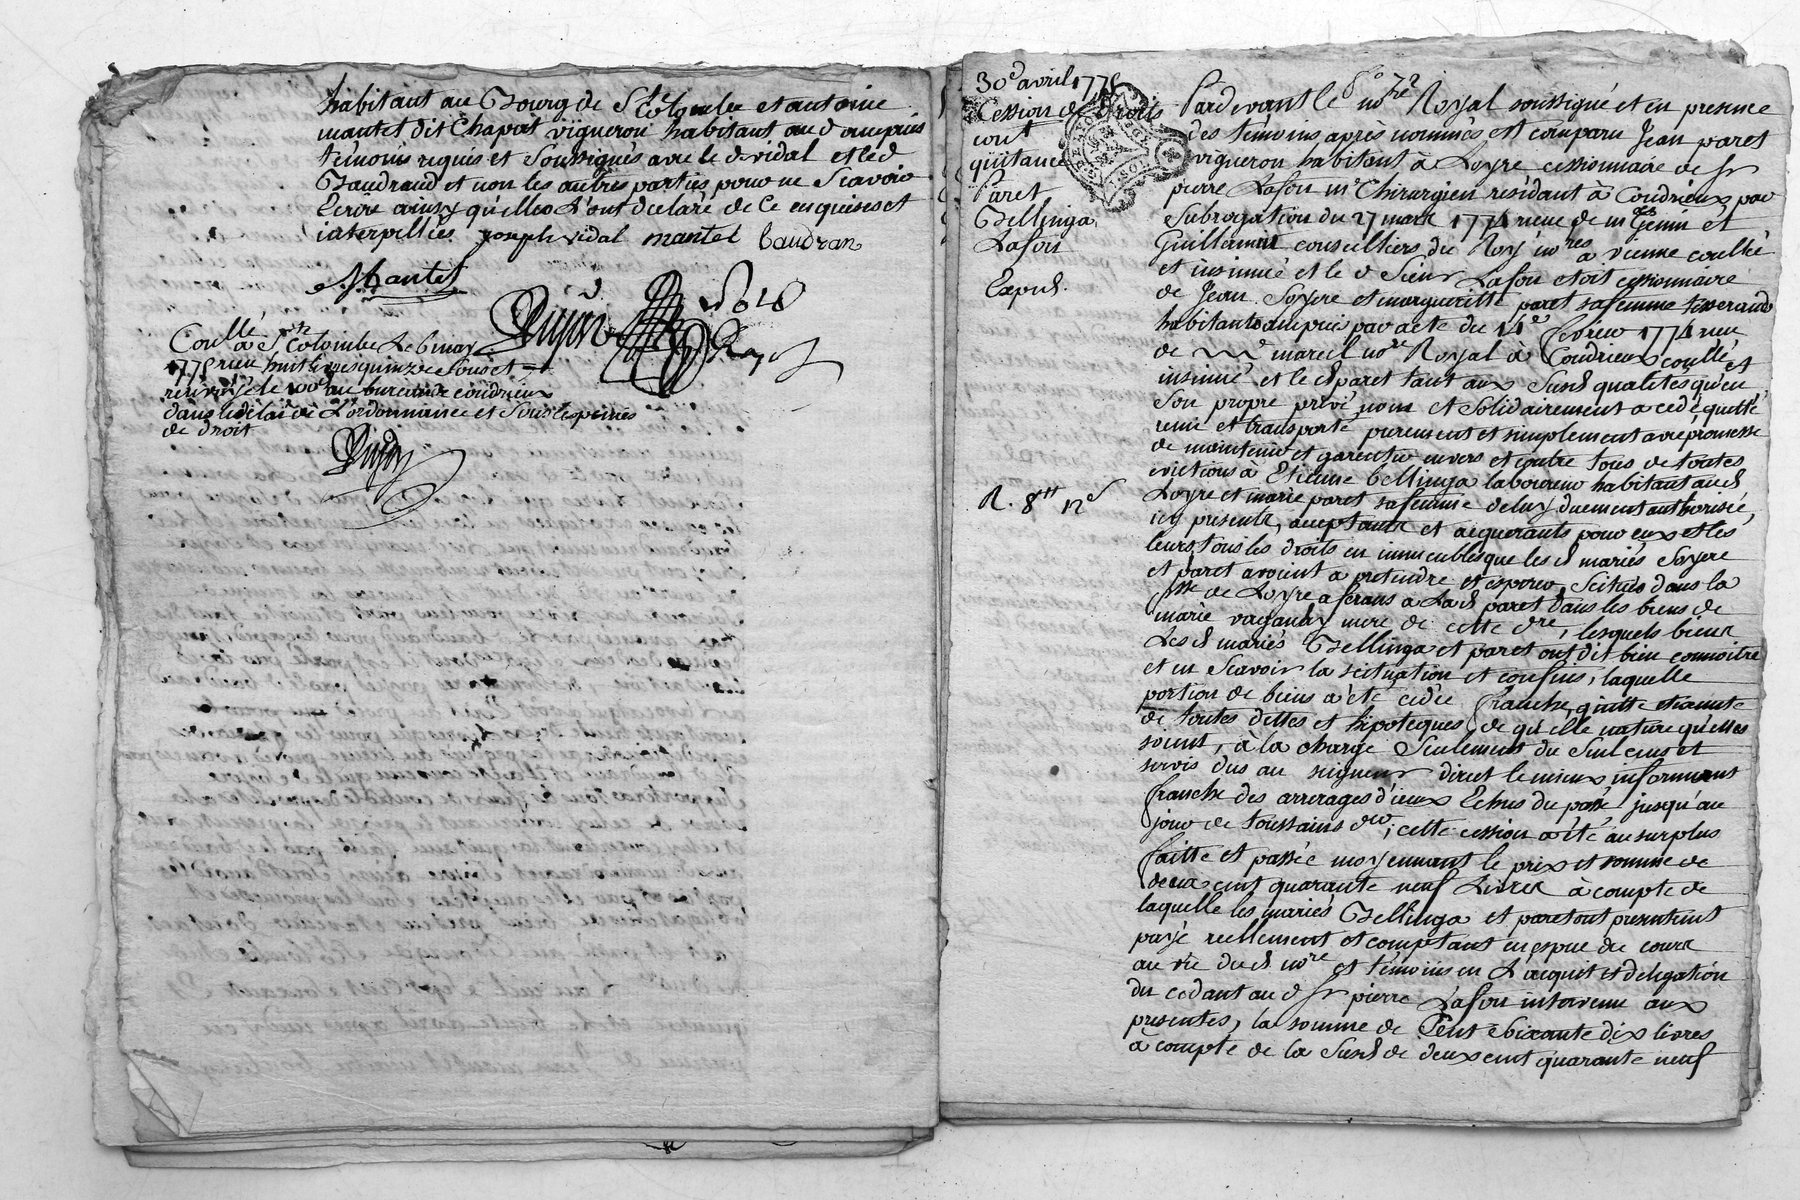 habitant au Bourg de Ste Colombe et antoine
mantet dit Chapot vigneron habitant aud ampuis
témoins requis et Soussignés avec le d vidal et led
Baudrand et non les autres parties pour ne Scavoir
Ecrire ainsy qu'elles L'ont declaré de Ce enquises et
interpellées joseph vidal mantel baudran
Mantel
Dujon
Coullé à Ste Colombe Le 6 may
1775 reçu huit livres quinze sous et
renvoyé le au bureau de condrieux
dans le délai de L'ordonnance et Sous les peines
de droit
Dujon
30e avril 1775
Cession de droits
cont
quittance
Paret
Bellinga
Lafon
Exped.
R. 8tt 12s
fo 72
Pardevant le no.re Royal soussigné et en presence
des témoins après nommés est comparu Jean paret
vigneron habitant à Loyre cessionnaire de sr
pierre Lafon me Chirurgien residant à Condrieux par
Subrogation du 27 mars 1774 reçue de me Genin et
Guillermin conseilliers du Roy no.res à vienne coullé
et insinué et le d Sieur Lafon etoit cessionnaire
de Jean Soyere et margueritte paret sa femme tisserand
habitants ampuis par acte du 14e fevrier 1774 reçu
de me mareil no.re Royal à Condrieux coullé et
insinué et le d paret tant aux Susd qualités qu'en
Son propre privé nom et Solidairement a cedé quitté
remis et transporté purement et simplement avec promesse
de maintenir et garentir envers et contre tous de toutes
evictions à Etienne bellinga laboureur habitant aud
Loyre et marie paret sa femme de luy duement authorisée,
icy presents, acceptants et acquerants pour eux et les
leurs tous les droits en immeubles que les d mariés Soyere
et paret avoient a pretendre et esperer, Scitués dans la
psse de Loyre aferans a Lad paret dans les biens de
marie vaganay mere de cette dre, lesquels biens
Les d mariés Bellinga et paret ont dit bien connoitre
et en Scavoir la scituation et confins, laquelle
portion de biens a été cedée franche, quitte et exempte
de toutes dettes et hipoteques de qu'elle nature qu'elles
soient, à la charge Seulement du Seul cens et
servis dus au seigneur direct le mieux informant
franche des arrerages d'iceux Echus du passé jusqu'au
jour de toussaints der, cette cession a été au surplus
faitte et passée moyennant le prix et somme de
deux cent quarante neuf Livres à compte de
laquelle les mariés Bellinga et paret ont presentement
payé reellement et comptant en espece du cours
au vu dud no.re et témoins en L'acquit et delegation
du cedant au d sr pierre Lafon intervenu aux
presentes, la somme de Cent Soixante dix livres
à compte de la Susd de deux cent quarante neuf